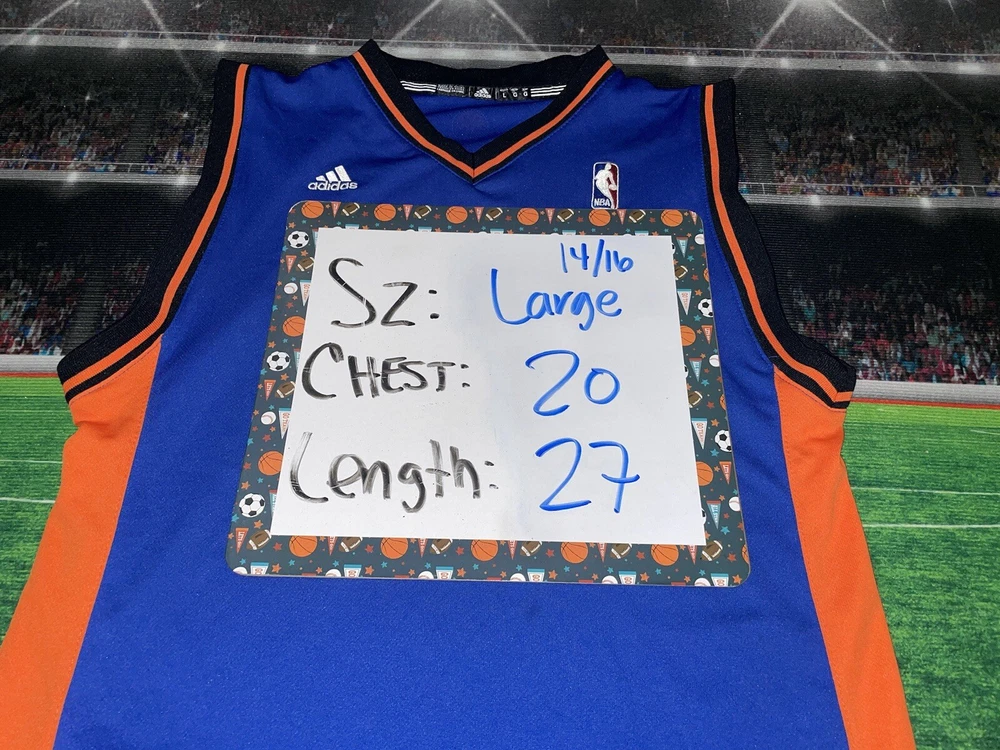 adidas
adidas
NBA
14/16
Sz: Large
CHEST: 20
Length: 27